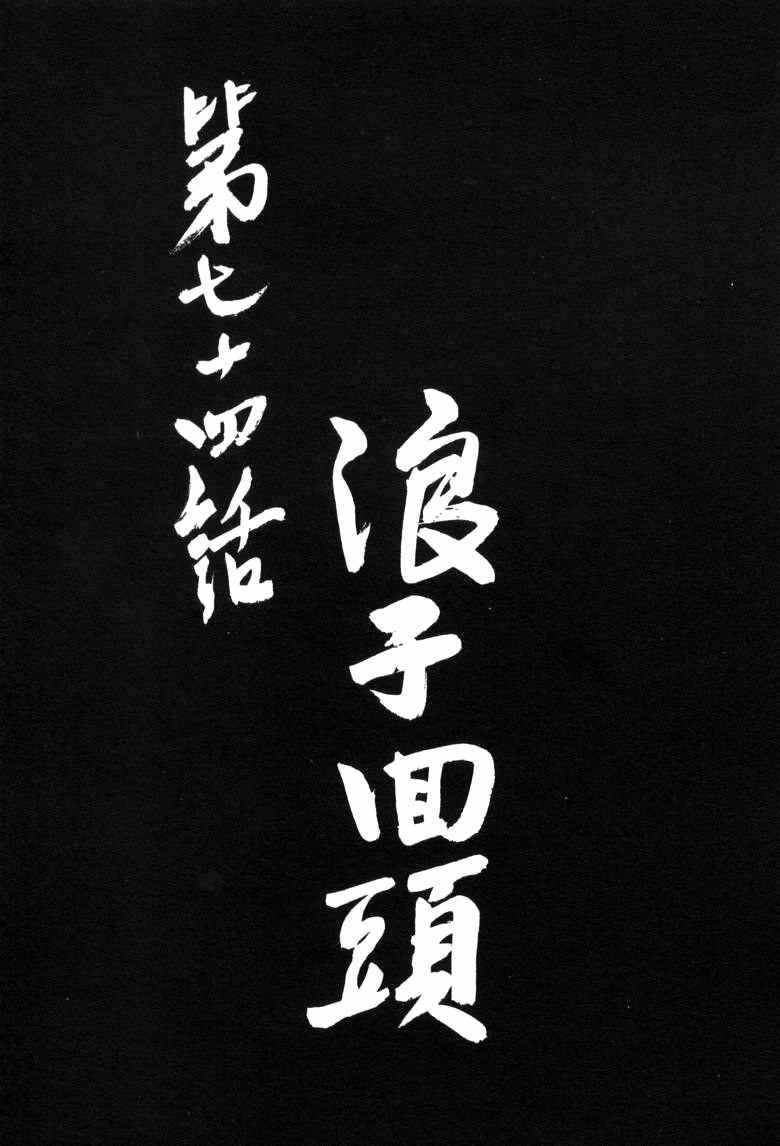 浪子回頭
第七十四話